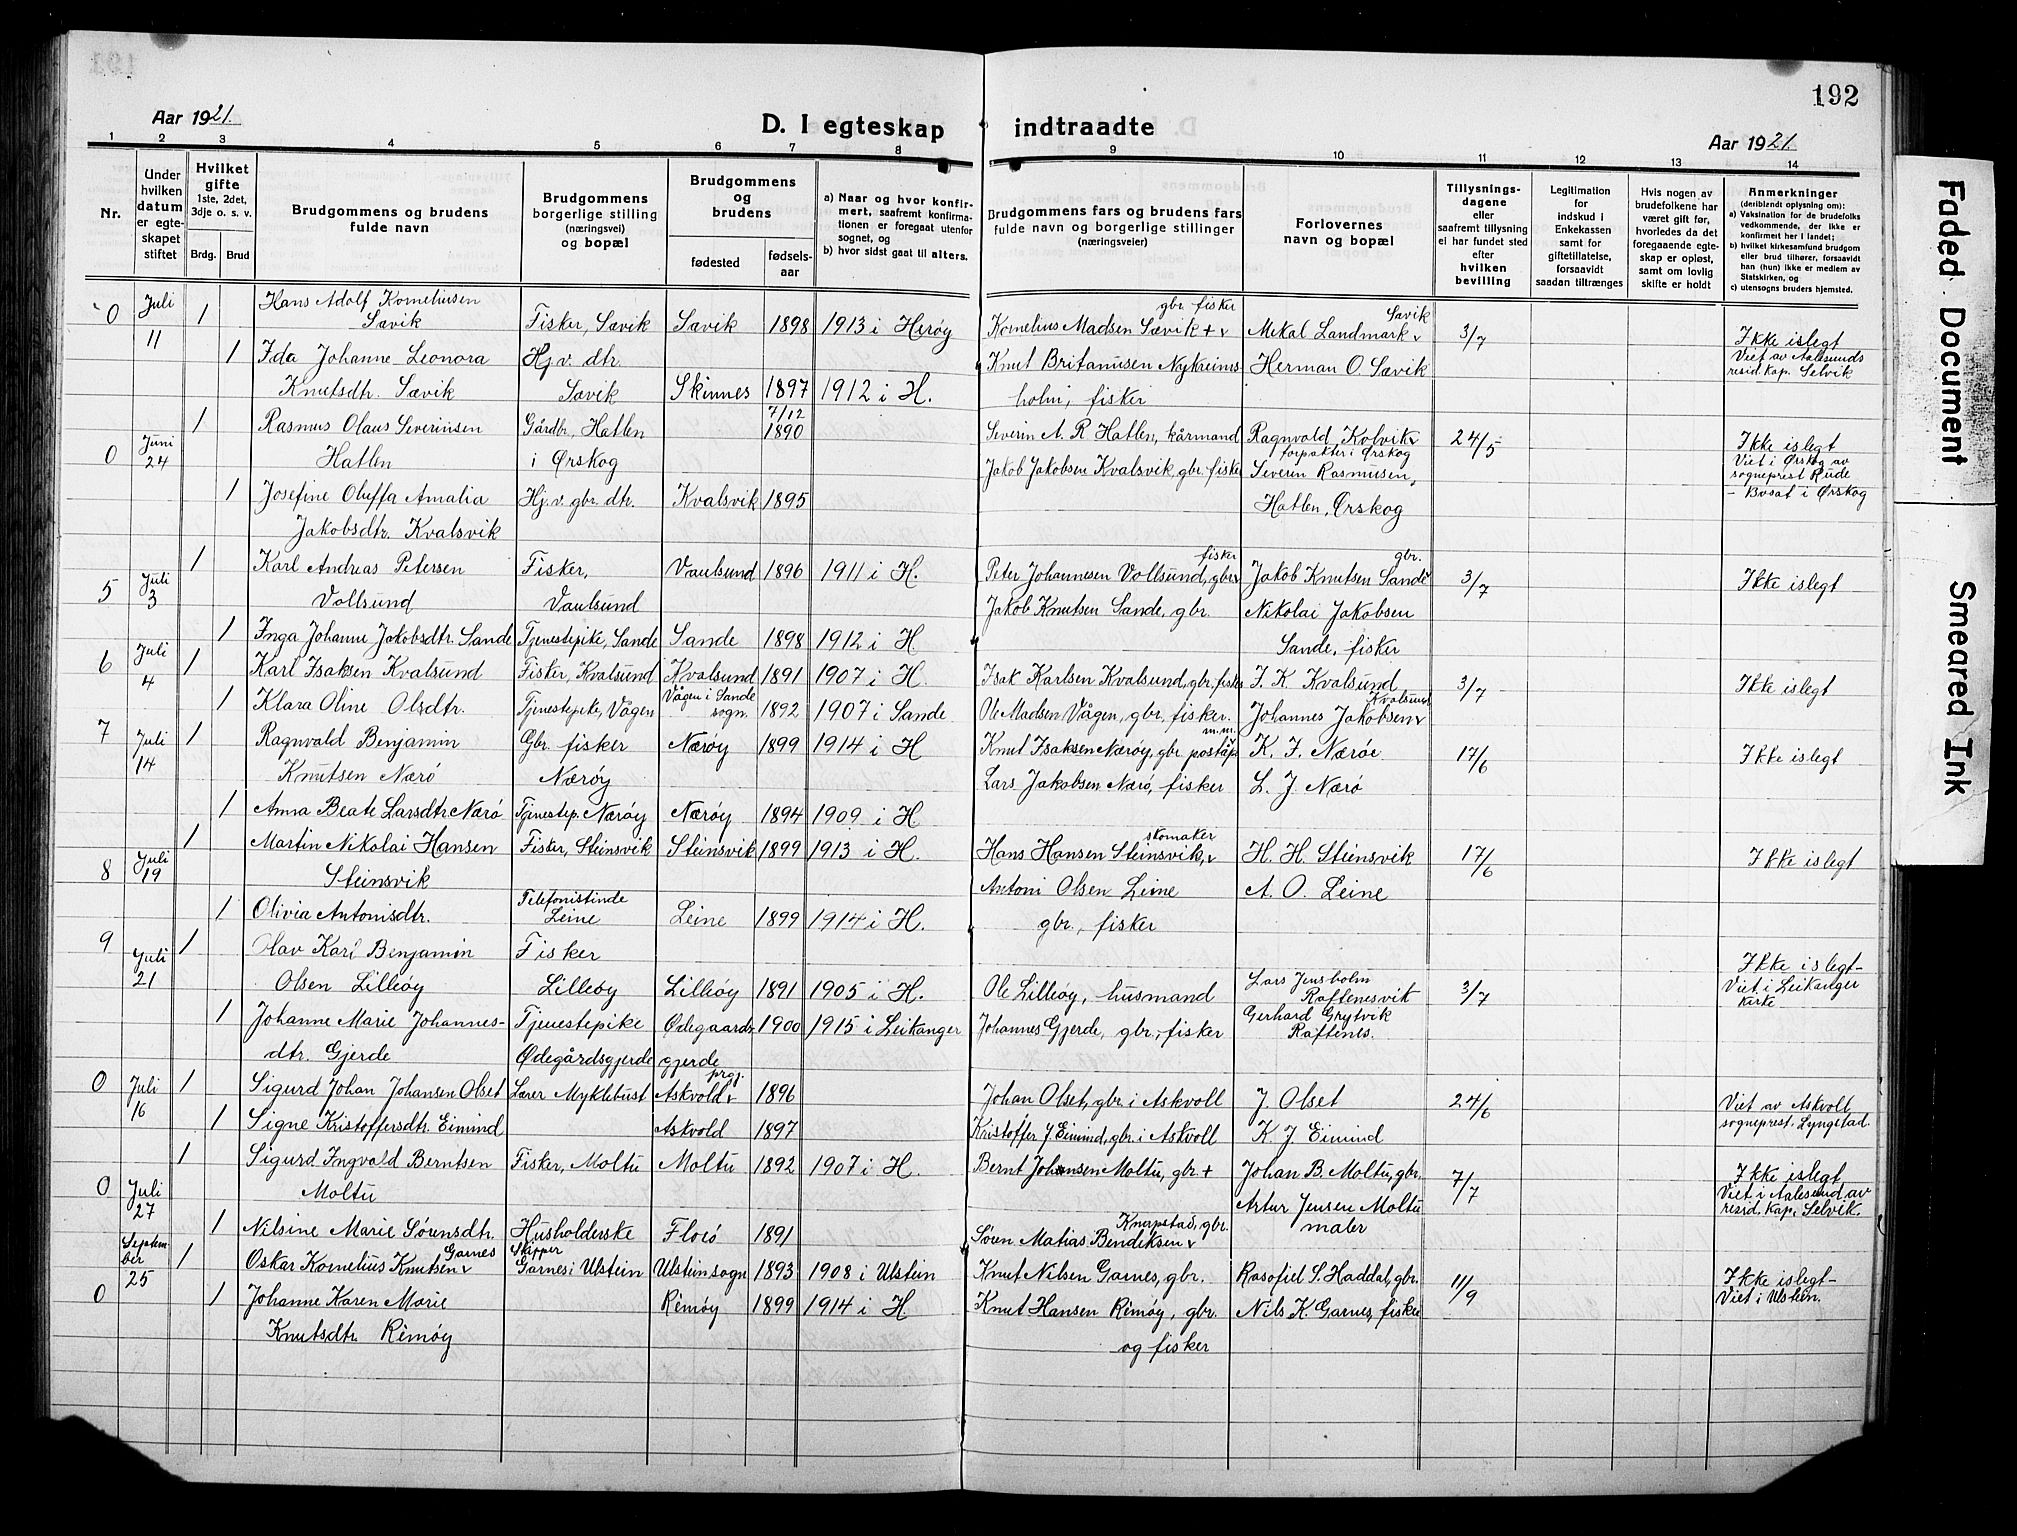 192
Aar 1921.
D. I egteskap indtraadte
Aar 1921.
1 2 3 4 5 6 7 8 9 10 11 12 13 14
Nr.
Under hvilken datum er egteskapet stiftet
Hvilket gifte 1ste, 2det, 3dje o. s. v.
Brdg. Brud
Brudgommens og brudens fulde navn
Brudgommens borgerlige stilling (næringsvei) og bopæl
Brudgommens og brudens
fødested fødselsaar
a) Naar og hvor konfirmert, saafremt konfirmationen er foregaat utenfor sognet, og
b) hvor sidst gaat til alters.
Brudgommens fars og brudens fars fulde navn og borgerlige stillinger (næringsveier)
Forlovernes navn og bopæl
Tillysningsdagene eller saafremt tillysning ei har fundet sted efter hvilken bevilling
Legitimation for indskud i Enkekassen samt for giftetillatelse, forsaavidt saadan tiltrænges
Hvis nogen av brudefolkene har været gift før, hvorledes da det foregaaende egteskap er opløst, samt om lovlig skifte er holdt
Anmerkninger (deriblandt oplysning om):
a) Vaksination for de brudefolks vedkommende, der ikke er konfirmert her i landet;
b) hvilket kirkesamfund brudgom eller brud tilhører, forsaavidt han (hun) ikke er medlem av Statskirken, og
c) utensogns bruders hjemsted.
0 Juli 11 1 Hans Adolf Korneliusen Sævik Fisker, Sævik Sævik 1898 1913 i Herøy Kornelius Madsen Sævik + gbr. fisker Mekal Landmark Sævik 3/7 Ikke islegt
1 Ida Johanne Leonora Knutsdtr. Sævik Hj.v. dtr. Sævik Skinnes 1897 1912 i H. Knut Britanusen Nykreimsholm, fisker Herman O. Sævik Viet av Aalesunds resid. kap. Selvik
0 Juni 24 1 Rasmus Olaus Severinsen Hatlen Gårdbr, Hatlen i Ørskog 7/12 1890 Severin A. R Hatlen, kårmand Ragnvald Kolvik forpakter i Ørskog 24/5 Ikke islegt
1 Josefine Oluffa Amalia Jakobsdtr. Kvalsvik Hj.v. gbr. dtr. Kvalsvik 1895 Jakob Jakobsen Kvalsvik, gbr. fisker Severin Rasmusen, Hatlen, Ørskog Viet i Ørskog av sogneprest Rude - Bosat i Ørskog
5 Juli 3 1 Karl Andreas Petersen Vollsund Fisker, Vaulsund Vaulsund 1896 1911 i H. Peter Johannesen Vollsund, gbr. fisker Jakob Knutsen Sande gbr. 3/7 Ikke islegt
1 Inga Johanne Jakobsdtr. Sande Tjenestepike, Sande Sande 1898 1912 i H. Jakob Knutsen Sande, gbr. Nikolai Jakobsen Sande, fisker
6 Juli 4 1 Karl Isaksen Kvalsund Fisker, Kvalsund Kvalsund 1891 1907 i H. Isak Karlsen Kvalsund, gbr. fisker I. K Kvalsund 3/7 Ikke islegt
1 Klara Oline Olsdtr. Tjenestepike, Vågen Vågen i Sande sogn. 1892 1907 i Sande Ole Madsen Vågen, gbr. fisker. Johannes Jakobsen Kvalsund
7 Juli 14 1 Ragnvald Benjamin Knutsen Nærø Gbr. fisker Nærøy Nærøy 1899 1914 i H Knut Isaksen Nærøy, gbr. poståp. m.m. K. I. Nærøe 17/6 Ikke islegt
1 Anna Beate Larsdtr. Nærø Tjenestep. Nærøy Nærøy 1894 1909 i H Lars Jakobsen Nærø, fisker L. J. Nærø
8 Juli 19 1 Martin Nikolai Hansen Steinsvik Fisker, Steinsvik Steinsvik 1899 1913 i H. Hans Hansen Steinsvik, skomaker H. H. Steinsvik 17/6 Ikke islegt
1 Olivia Antonisdtr. Telefonistinde Leine Leine 1899 1914 i H. Antoni Olsen Leine gbr., fisker A. O. Leine
9 Juli 21 1 Olav Karl Benjamin Olsen Lilleøy Fisker Lilleøy Lilleøy 1891 1905 i H. Ole Lilleøy, husmand Lars Jensholm Raftenesvik 3/7 Ikke islegt- Viet i Leikanger kirke
1 Johanne Marie Johannesdtr. Gjerde Tjenestepike Ødegårdsgjerde Ødegaardsgjerde 1900 1915 i Leikanger Johannes Gjerde, gbr., fisker Gerhard Grytvik Raftenes.
0 Juli 16 1 Sigurd Johan Johansen Olset Lærer Myklebust Askvold prgj. 1896 Johan Olset, gbr. i Askvoll J. Olset 24/6 Viet av Askvoll, sogneprest. Lyngstad.
1 Signe Kristoffersdtr. Eimind Askvold 1897 Kristoffer J. Eimind, gbr. i Askvoll K. J. Eimind
0 Juli 27 1 Sigurd Ingvald Berntsen Moltu Fisker, Moltu Moltu 1892 1907 i H. Bernt Johansen Moltu, gbr. + Johan B. Moltu, gbr. 7/7 Ikke islegt
1 Nilsine Marie Sørensdtr. Husholderske Florø 1891 Søren Matias Bendiksen Knapstad, gbr. Artur Jensen Moltu maler Viet i Aalesund av resid. kap. Selvik.
0 September 25 1 Oskar Kornelius Knutsen Garnes Skipper Garnes i Ulstein Ulstein sogn 1893 1908 i Ulstein Knut Nilsen Garnes, gbr. Rasofiel S. Haddal, gbr. 11/9 Ikke islegt- Viet i Ulstein.
1 Johanne Karen Marie Knutsdtr. Rimøy Rimøy 1899 1914 i H Knut Hansen Rimøy, gbr. og fisker Nils K. Garnes, fisker
Faded Document
Smeared Ink